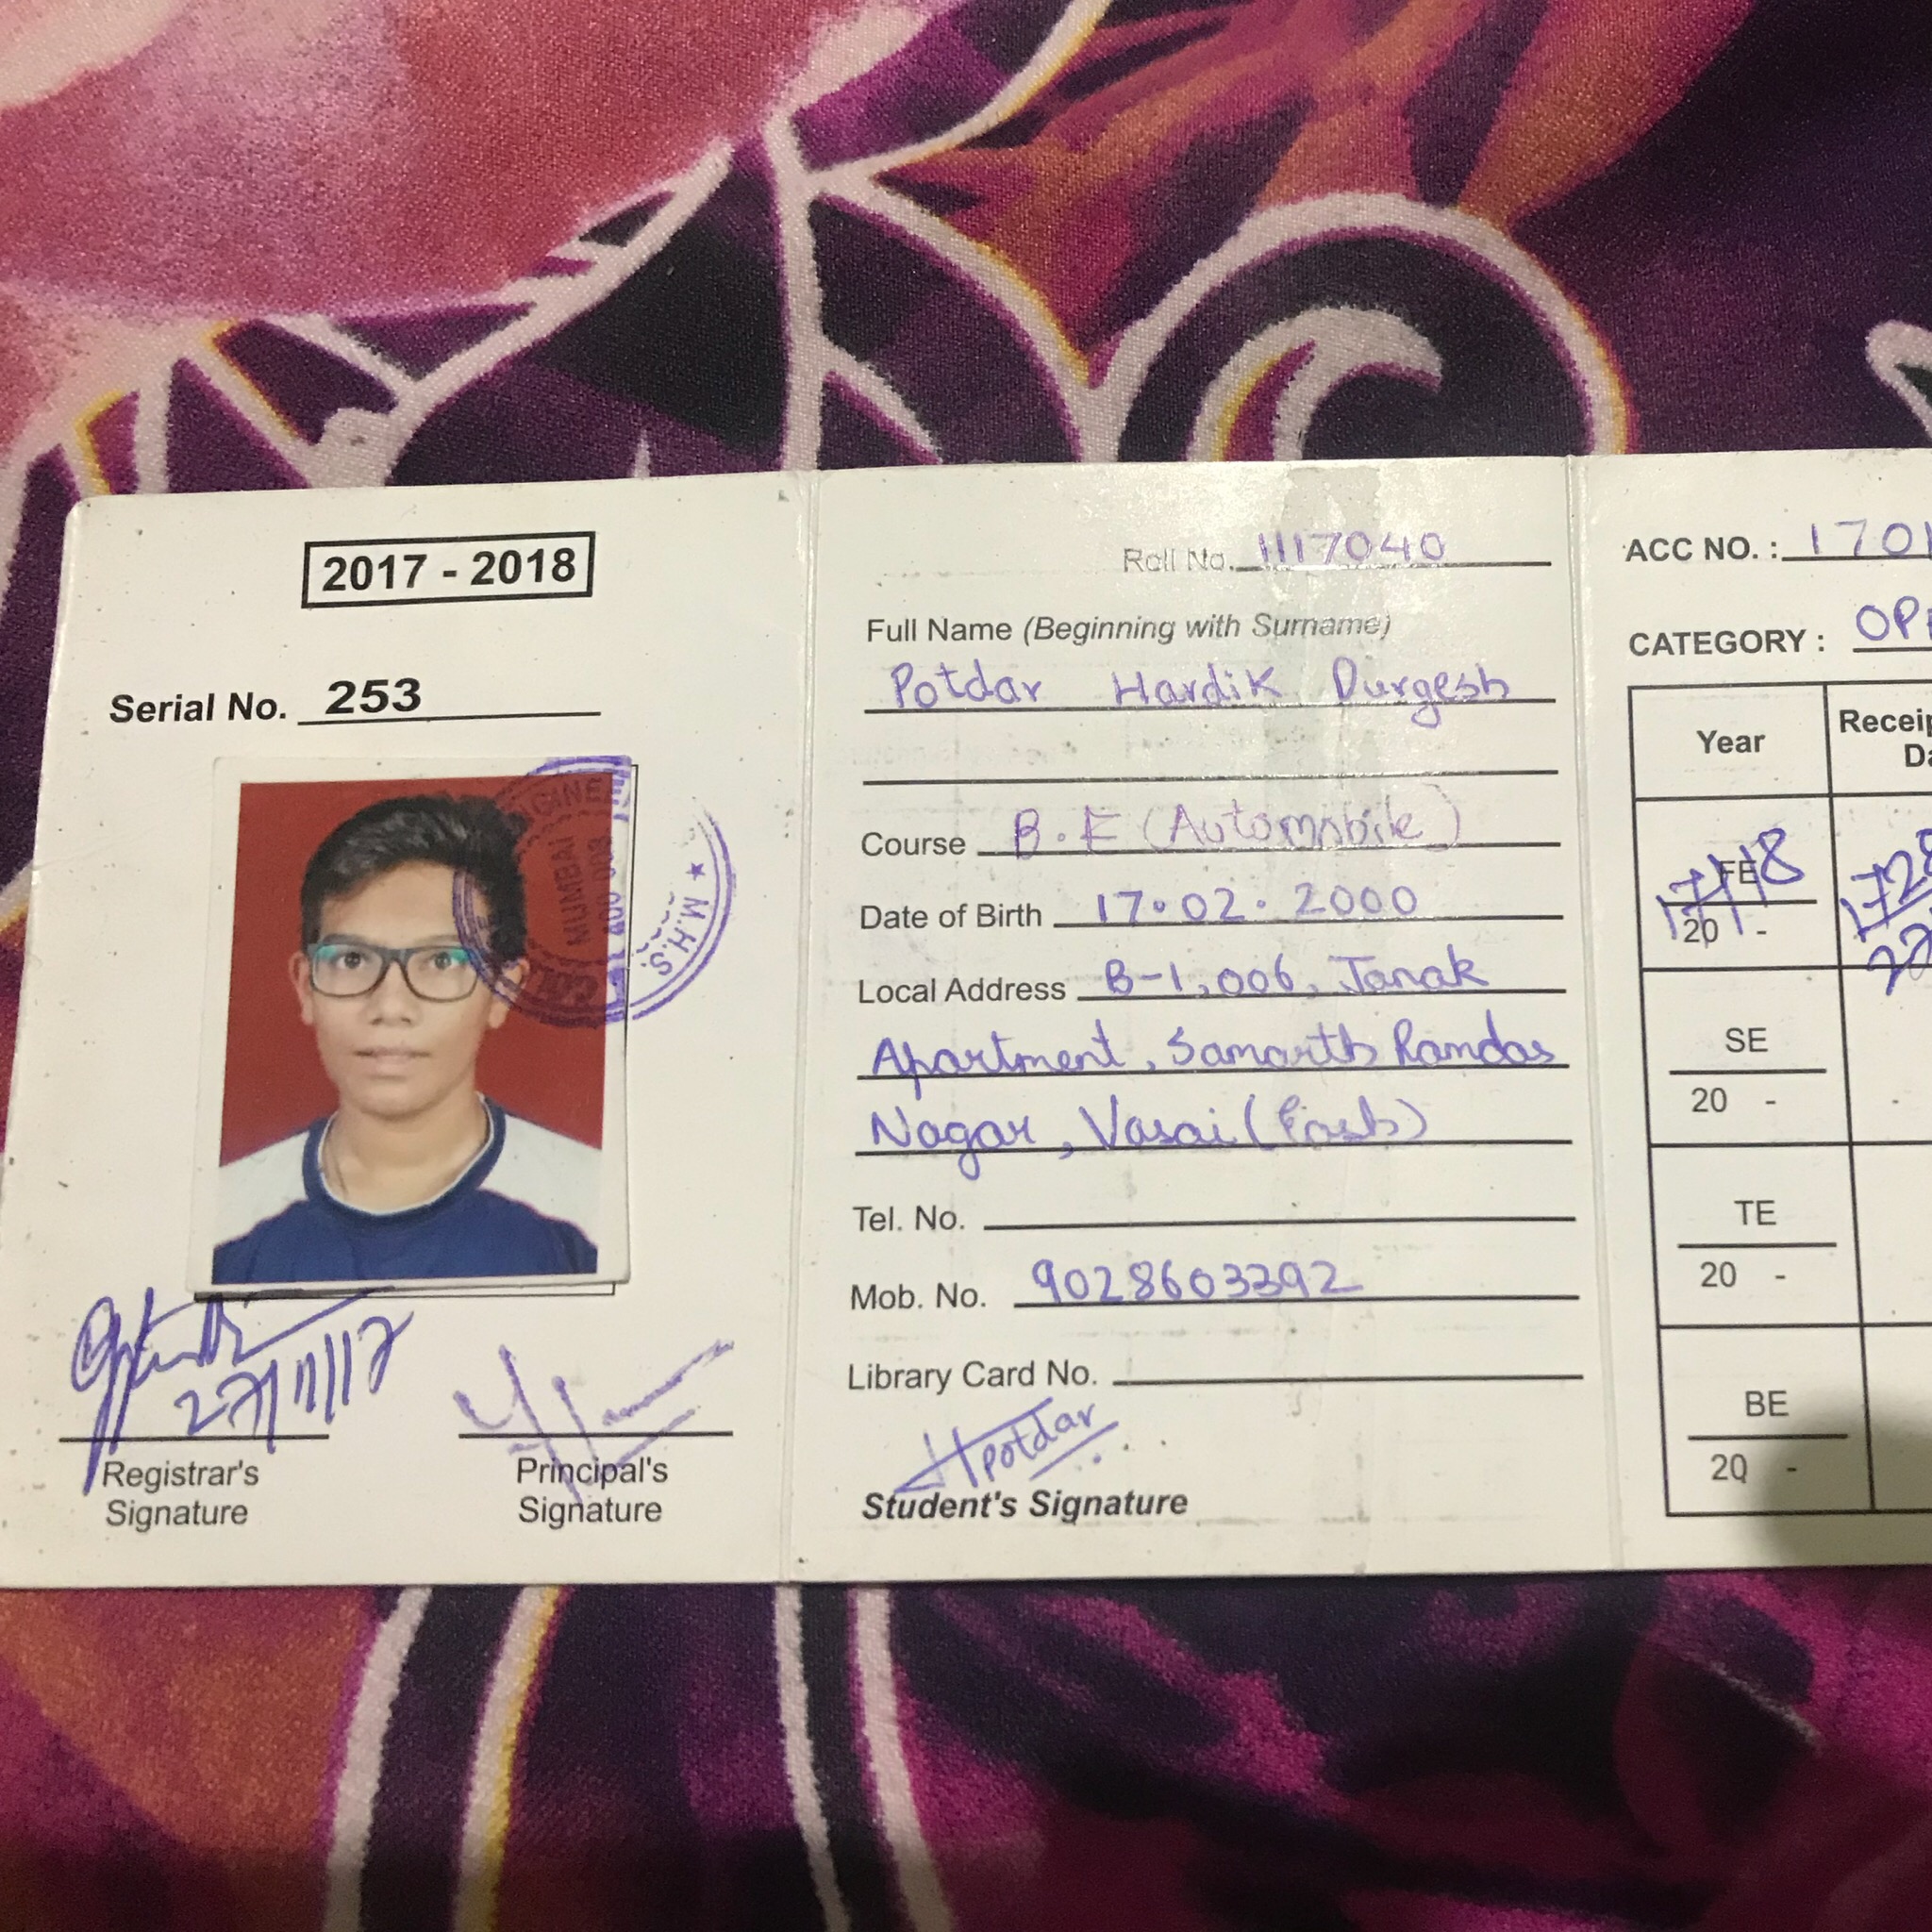 2017 - 2018
Serial No. 253
MUMBAI
★ M.H.S.
27/11/17
Registrar's
Signature
Principal's
Signature
Roll No. 1117040
Full Name (Beginning with Surname)
Potdar Hardik Durgesh
Course B.E (Automobile)
Date of Birth 17.02.2000
Local Address B-1,006, Janak
Apartment, Samarth Ramdas
Nagar, Vasai (East)
Tel. No.
Mob. No. 9028603392
Library Card No.
HPotdar
Student's Signature
ACC NO. : 1701
CATEGORY :
Year
FE
17/18
20 -
SE
20 -
TE
20 -
BE
20 -